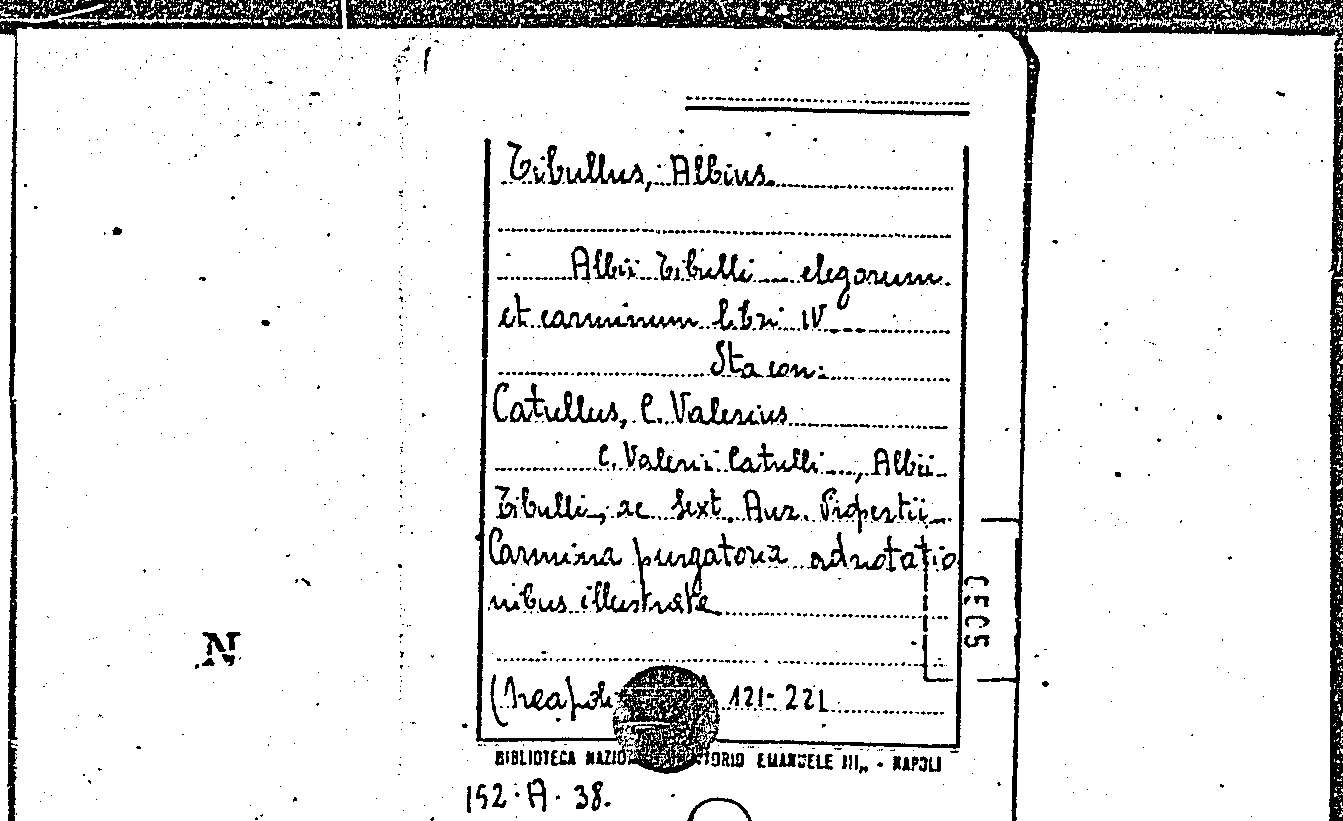 Tibullus, Albius.
Albii Tibulli ... elegorum
et carminum libri IV ...
Sta con:
Catullus, C. Valerius
C. Valerii Catulli ..., Albii
Tibulli, ac Sext. Aur. Propertii
Carmina purgatoria adnotatio
nibus illustrate
121-221
BIBLIOTECA EMANUELE III, - NAPOLI
152·A·38.
N